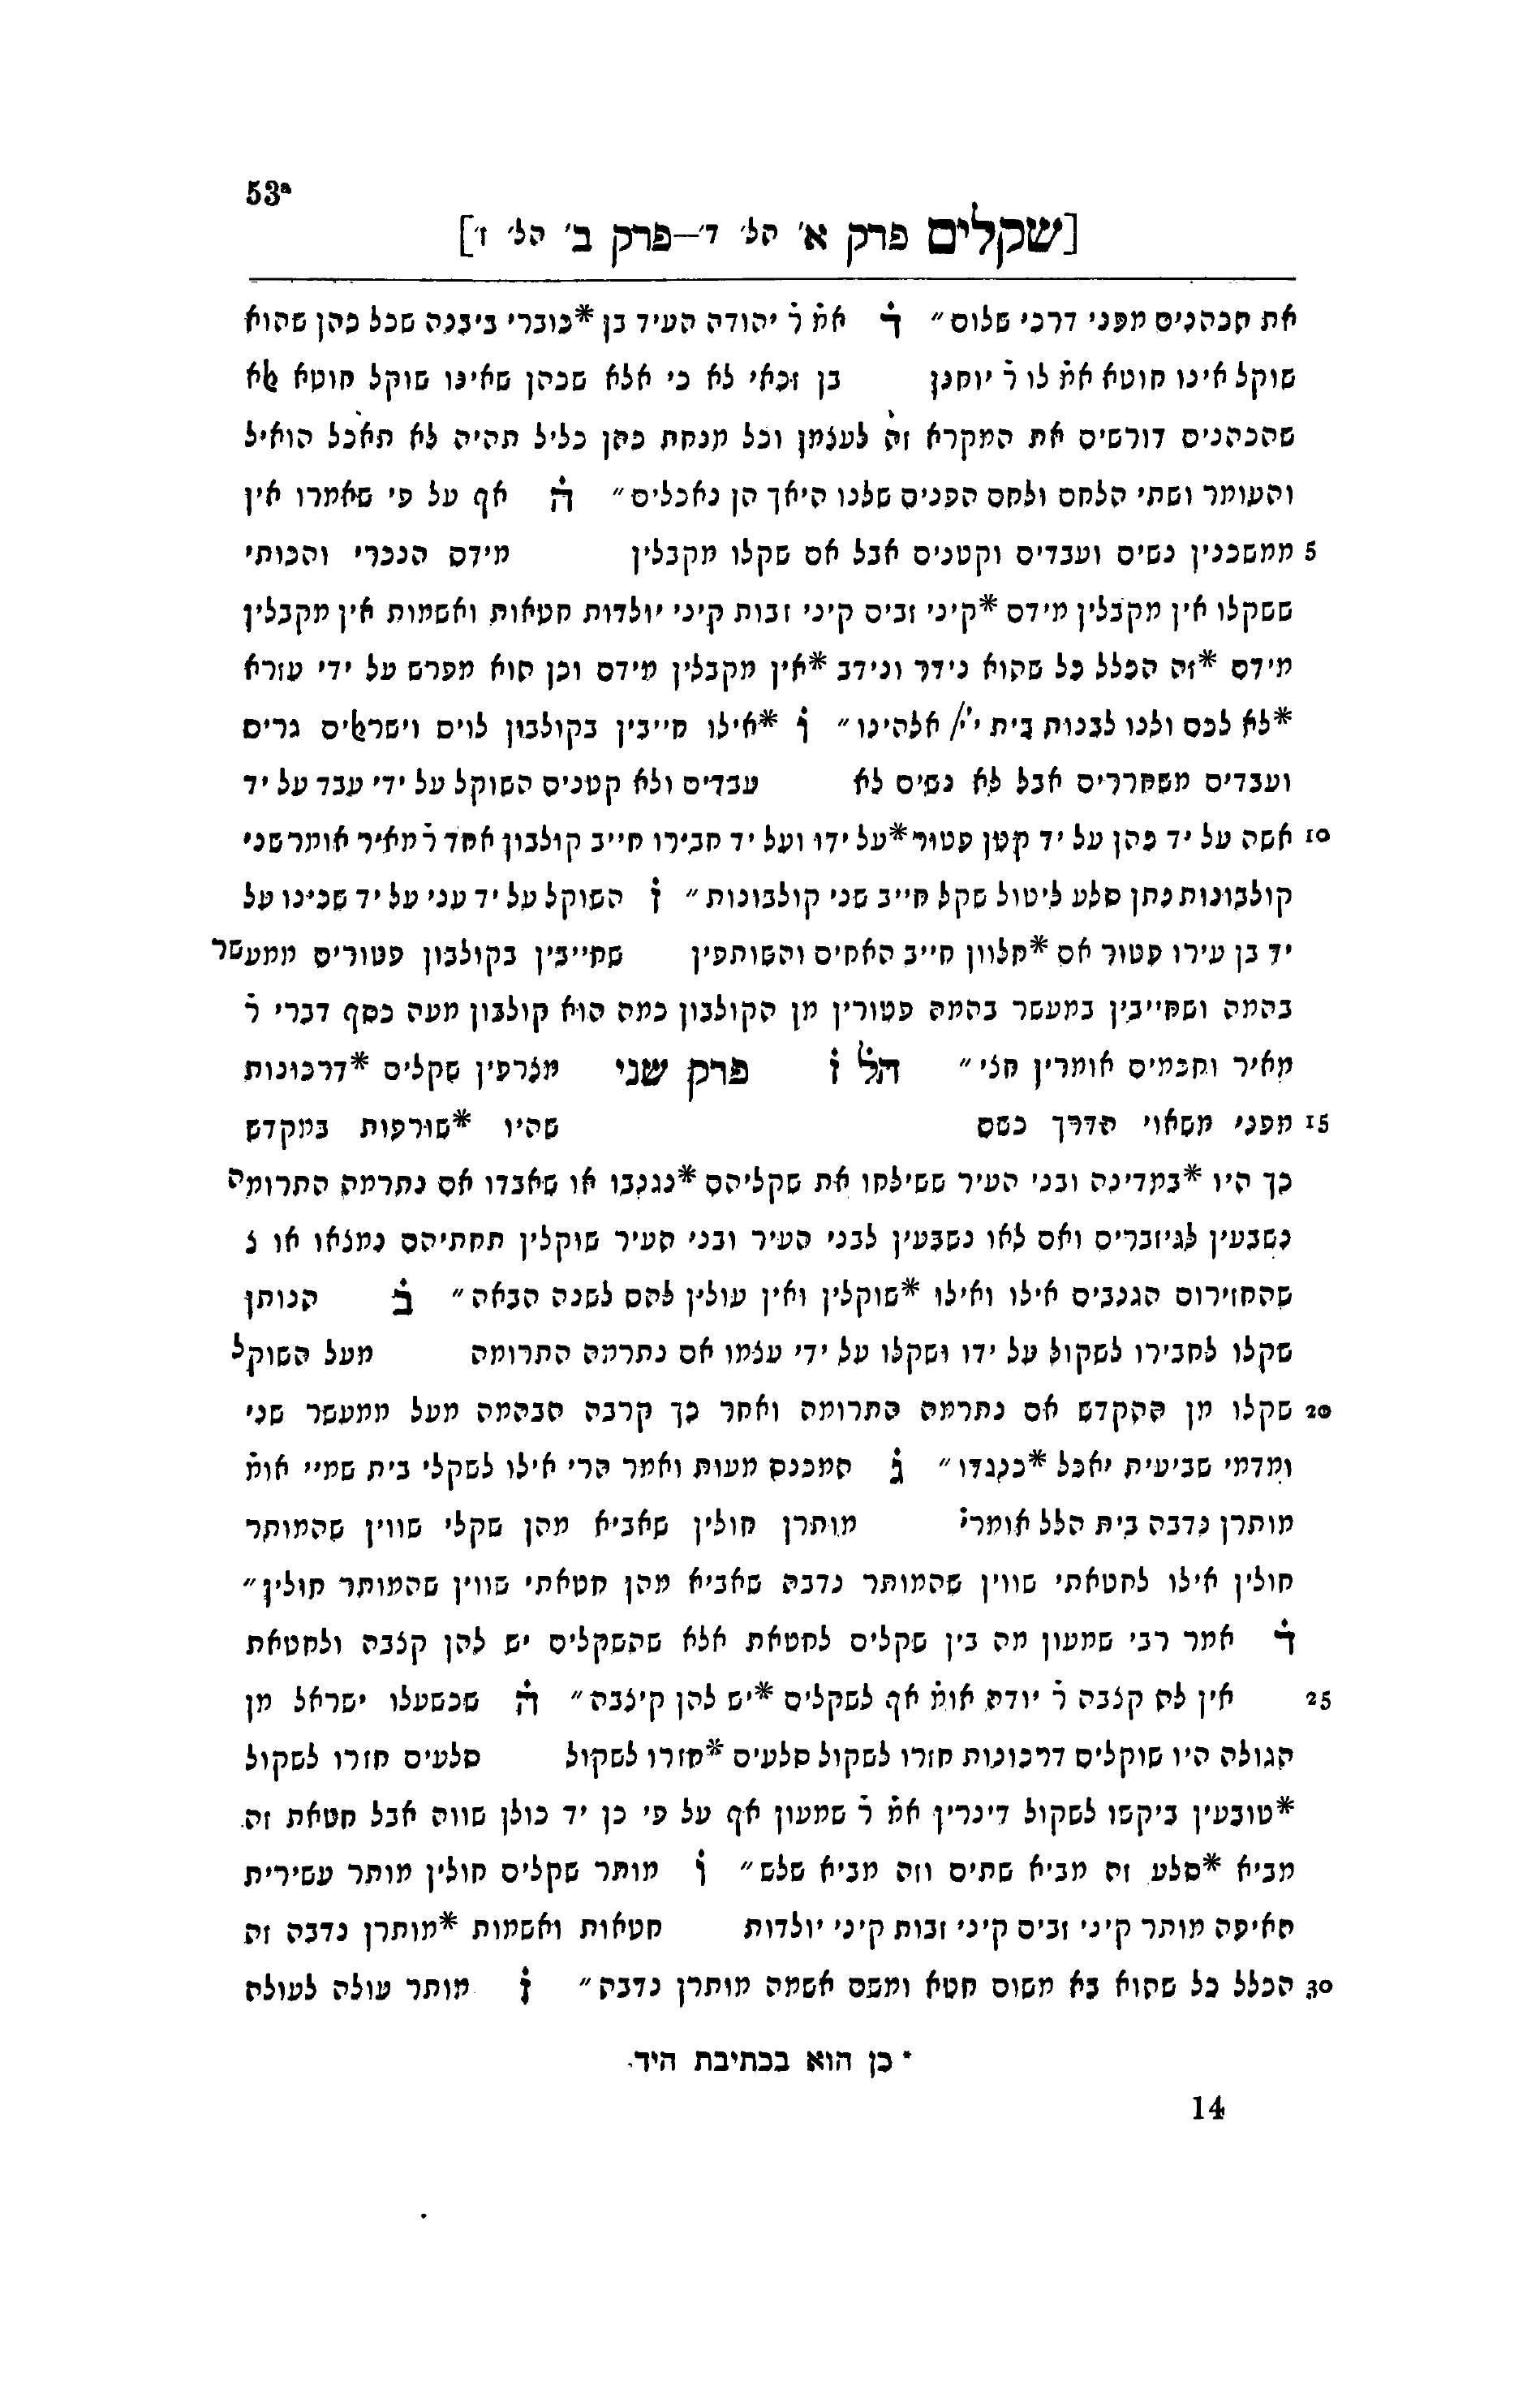 53ª
[שקלים פרק א׳ הל׳ ד׳—פרק ב׳ הל׳ ז׳]
את הכהנים מפני דרכי שלום״ ד̇ אמ̇ ר̇ יהודה העיד בן *כוברי ביבנה שכל כהן שהוא
שוקל אינו חוטא אמ̇ לו ר̇ יוחנן בן זכאי לא כי אלא שכהן שאינו שוקל חוטא אלא
שהכהנים דורשים את המקרא זה לעצמן וכל מנחת כהן כליל תהיה לא תאכל הואיל
והעומר ושתי הלחם ולחם הפנים שלנו היאך הן נאכלים״ ה̇ אף על פי שאמרו אין
5 ממשכנין נשים ועבדים וקטנים אבל אם שקלו מקבלין מידם הנכרי והכותי
ששקלו אין מקבלין מידם *קיני זבים קיני זבות קיני יולדות חטאות ואשמות אין מקבלין
מידם *זה הכלל כל שהוא נידר ונידב *אין מקבלין מידם וכן הוא מפרש על ידי עזרא
*לא לכם ולנו לבנות בית י׳׳י/ אלהינו״ ו̇ *אילו חייבין בקולבון לוים וישראלים גרים
ועבדים משחררים אבל לא נשים לא עבדים ולא קטנים השוקל על ידי עבד על יד
10 אשה על יד כהן על יד קטן פטור *על ידו ועל יד חבירו חייב קולבון אחד ר̇ מאיר אומר שני
קולבונות נתן סלע ליטול שקל חייב שני קולבונות״ ז̇ השוקל על יד עני על יד שכינו על
יד בן עירו פטור אם *חלוון חייב האחים והשותפין שחייבין בקולבון פטורים ממעשר
בהמה ושחייבין במעשר בהמה פטורין מן הקולבון כמה הוא קולבון מעה כסף דברי ר̇
מאיר וחכמים אומרין חצי״ הל̇ ז̇ פרק שני מצרפין שקלים *דרכונות
15 מפני משאוי הדרך כשם שהיו *שורפות במקדש
כך היו *במדינה ובני העיר ששילחו את שקליהם *נגנבו או שאבדו אם נתרמה התרומה
נשבעין לגיזברים ואם לאו נשבעין לבני העיר ובני העיר שוקלין תחתיהם נמצאו או צ
שהחזירום הגנבים אילו ואילו *שוקלין ואין עולין להם לשנה הבאה״ ב̇ הנותן
שקלו לחבירו לשקול על ידו ושקלו על ידי עצמו אם נתרמה התרומה מעל השוקל
20 שקלו מן ההקדש אם נתרמה התרומה ואחר כך קרבה הבהמה מעל ממעשר שני
ומדמי שביעית יאכל *כנגדו״ ג̇ המכנס מעות ואמר הרי אילו לשקלי בית שמיי אומ̇
מותרן נדבה בית הלל אומרי̇ מותרן חולין שאביא מהן שקלי שווין שהמותר
חולין אילו לחטאתי שווין שהמותר נדבה שאביא מהן חטאתי שווין שהמותר חולין״
ד̇ אמר רבי שמעון מה בין שקלים לחטאת אלא שהשקלים יש להן קצבה ולחטאת
25 אין לה קצבה ר̇ יודה אומ̇ אף לשקלים *יש להן קיצבה״ ה̇ שכשעלו ישראל מן
הגולה היו שוקלים דרכונות חזרו לשקול סלעים *חזרו לשקול סלעים חזרו לשקול
*טובעין ביקשו לשקול דינרין אמ̇ ר̇ שמעון אף על פי כן יד כולן שווה אבל חטאת זה
מביא *סלע זה מביא שתים וזה מביא שלש״ ו̇ מותר שקלים חולין מותר עשירית
האיפה מותר קיני זבים קיני זבות קיני יולדות חטאות ואשמות *מותרן נדבה זה
30 הכלל כל שהוא בא משום חטא ומשם אשמה מותרן נדבה״ ז̇ מותר עולה לעולה
* כן הוא בכתיבת היד.
14